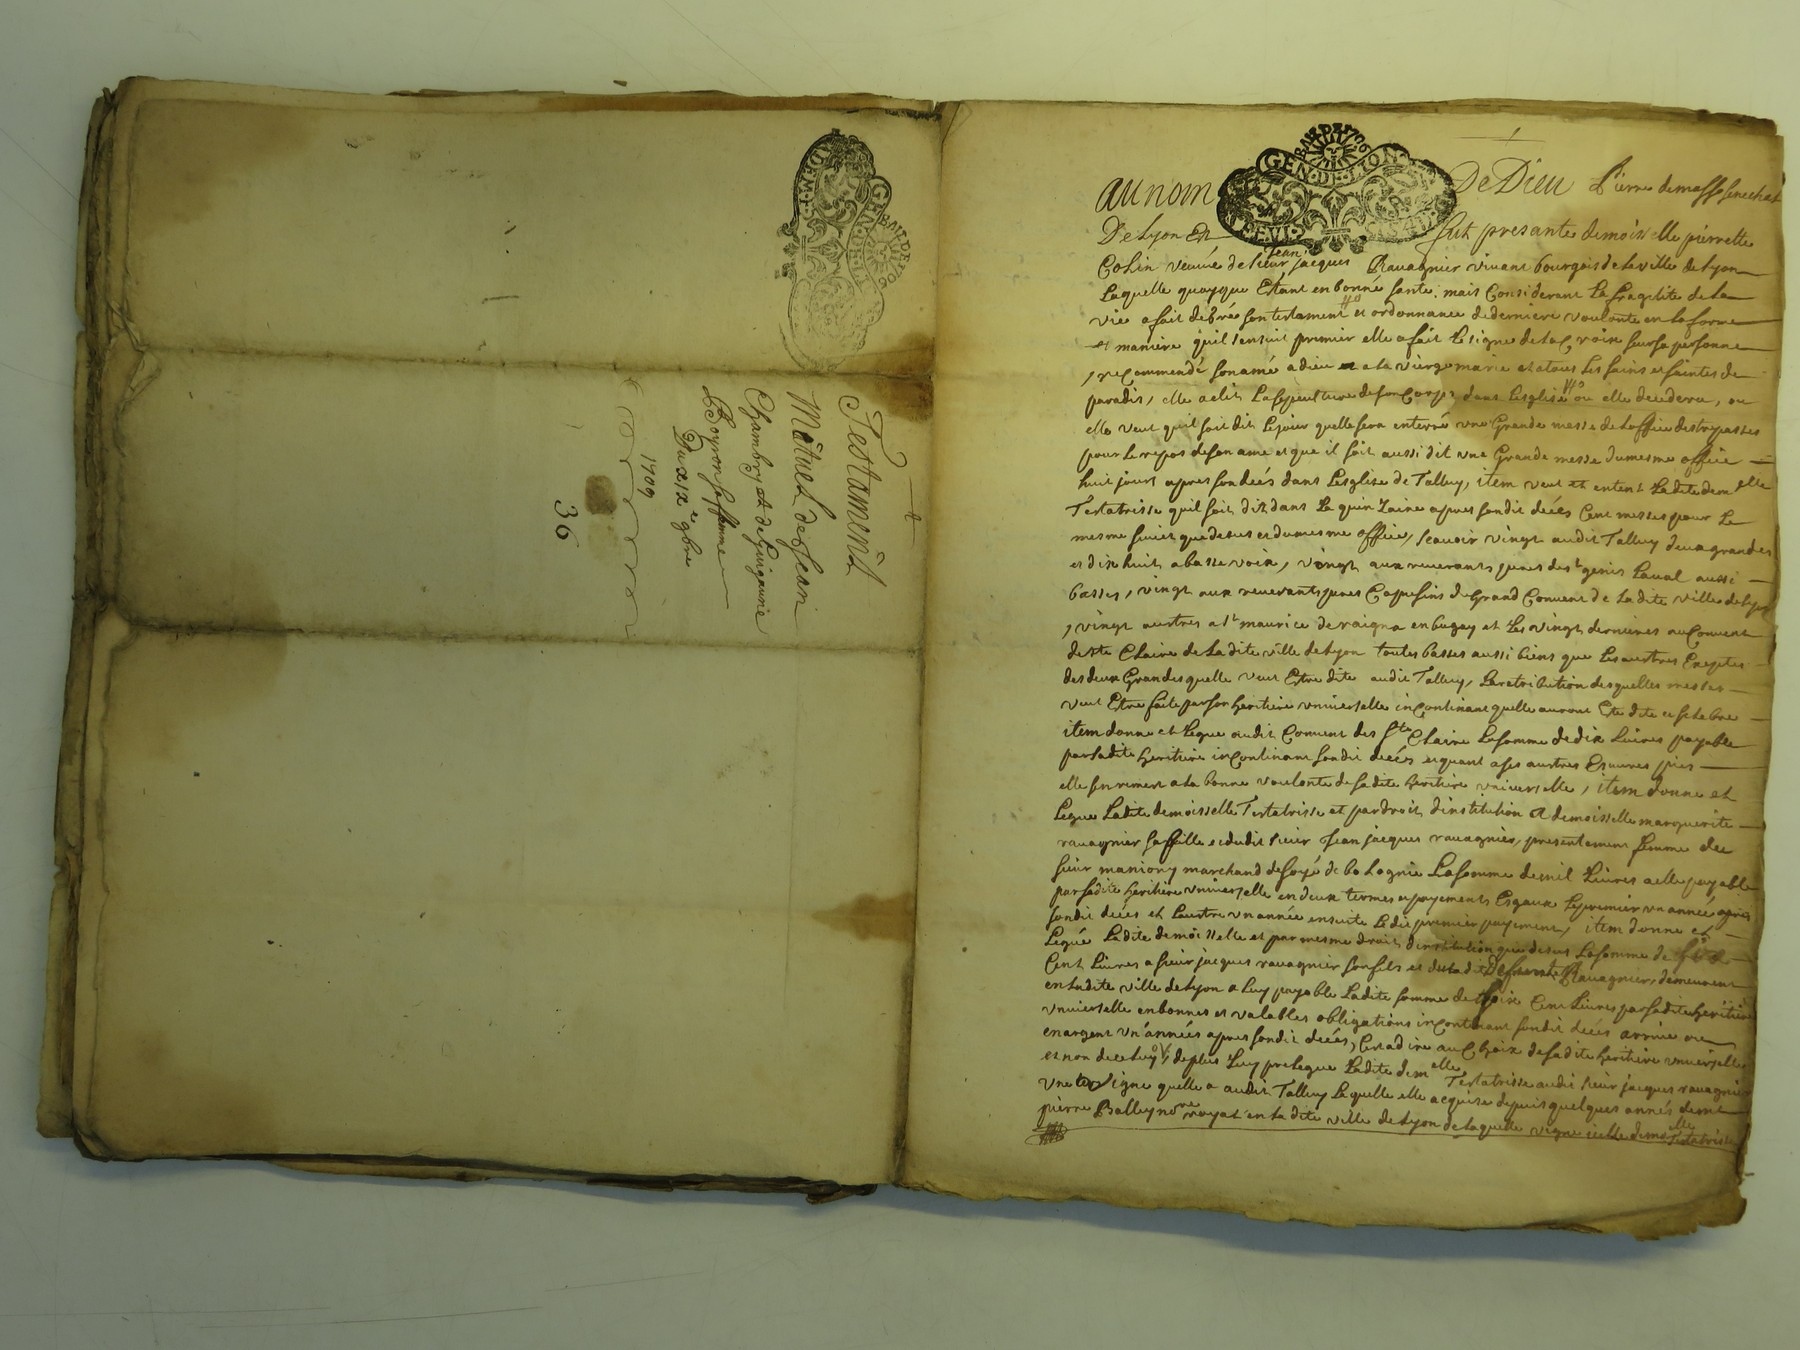 Testament
Mutuel de Jean
Chambry et de Guigonne
Boyron sa femme
Du xix e 9bre
1709
36
GEN·DE·LION
au nom De Dieu Pierre de masso senechal
De Lyon Et fut presante demoiselle pierrette
Colin veuve de sieur jean jacques Ravagnier vivant bourgois de la ville de Lyon
Laquelle quoyque Estant en bonne sante, mais Considerant La fragelite de la
vie a fait de gré son testament et ordonnance de derniere voulonte en la forme
et maniere quil sensuit premier elle a fait le signe de la Croix sur sa personne
, recommendé son amé a dieu et a la vierge marie et a tous les sains et saintes de
paradis, elle a elit La sepulture de son Corps dans Leglise ou elle decedera, ou
elle veut quil soit dit le jour quelle sera enterré une Grande messe de Loffice des trepasses
pour Le repos de son ame et que il soit aussi dit une Grande messe du mesme office
huit jours apres son decés dans Leglise de Talluy, item veut et entent Ladite demelle
Testatrisse quil soit dit dans La quinzaine apres sondit decés Cent messes pour Le
mesme suiet que desus et du mesme office, scavoir vingt audit Talluy deux grandes
et dix huit a basse voix, vingt aux reverants peres de st genis Laval aussi
basses, vingt aux reverants peres Capusins du Grand Convent de Ladite ville de Lyon
, vingt austres a st maurice de en bugey et Les vingt dernieres au Convent
de ste Claire de Ladite ville de Lyon toutes basses aussi biens que Les austres Exeptes
des deux Grandes quelle veut Estre dite audit Talluy, La retribution desquelles messes
veut Estre faite par son heritiere universelle incontinant quelle auront Ete dite et selebre
item donne et Legue audit Convent des Ste Claire La somme de dix Livres payable
par sadite heritiere incontinant sondit decés et quant a ses austres Euvres pies
elle sen remest a la bonne voulonte de sadite heritiere universelle, item donne et
Legue Ladite demoisselle Testatrisse et par droit dinstitution A demoisselle marguerite
ravagnier sa fille et dudit sieur Jean jacques ravagnier, presentement femme de
sieur marchand de soye de bologne La somme de mil Livres a elle payable
par sadite heritiere universelle en deux termes et payements Esgaux Le premier un année apres
sondit decés et Laustre un année ensuite Ledit premier payement, item donne et
Legué Ladite demoisselle et par mesme droit dinstitution que desus La somme de
Cent Livres a sieur jacques ravagnier son fils et dudit Ravagnier, demeurent
en Ladite ville de Lyon a Luy payable Ladite somme de Cent Livres par sadite heritiere
universelle en bonnes et valables obligations incontinant sondit decés arrivé ou
en argent un années apres sondit decés, Cest a dire au Choix de sadite heritiere universelle
et non de celuy, de plus Luy prelegue Ladite demelle Testatrisse audit sieur jacques ravagnier
une vigne quelle a audit Talluy Laquelle elle acquise depuis quelques annés de
pierre en Ladite ville de Lyon de Laquelle vigne icelle demelle Testatrisse